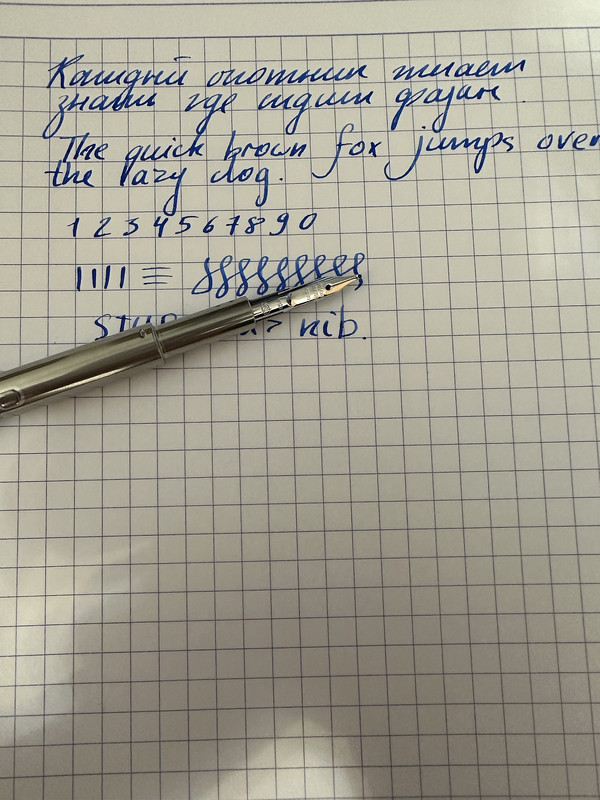 Каждый охотник желает
знать где сидит фазан.
The quick brown fox jumps over
the lazy dog.
1 2 3 4 5 6 7 8 9 0
nib.